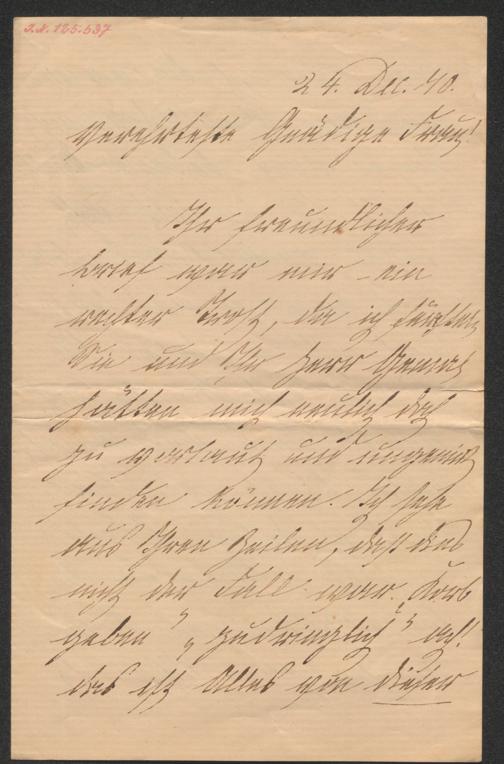 J.N. 125.537
24. Dec. 40.
Verehrteste Gnädige Frau!
Ihr freundlicher
Brief war mir ein
rechter Trost, da ich fürchtete,
Sie und Ihr Herr Gemal
hätten mich neulich doch
zu vorlaut und ungenirt
finden können. Ich sehe
aus Ihren Zeilen, daß dies
nicht der Fall war. Korb
geben „zudringlich" ach!
das ist Alles von dieser